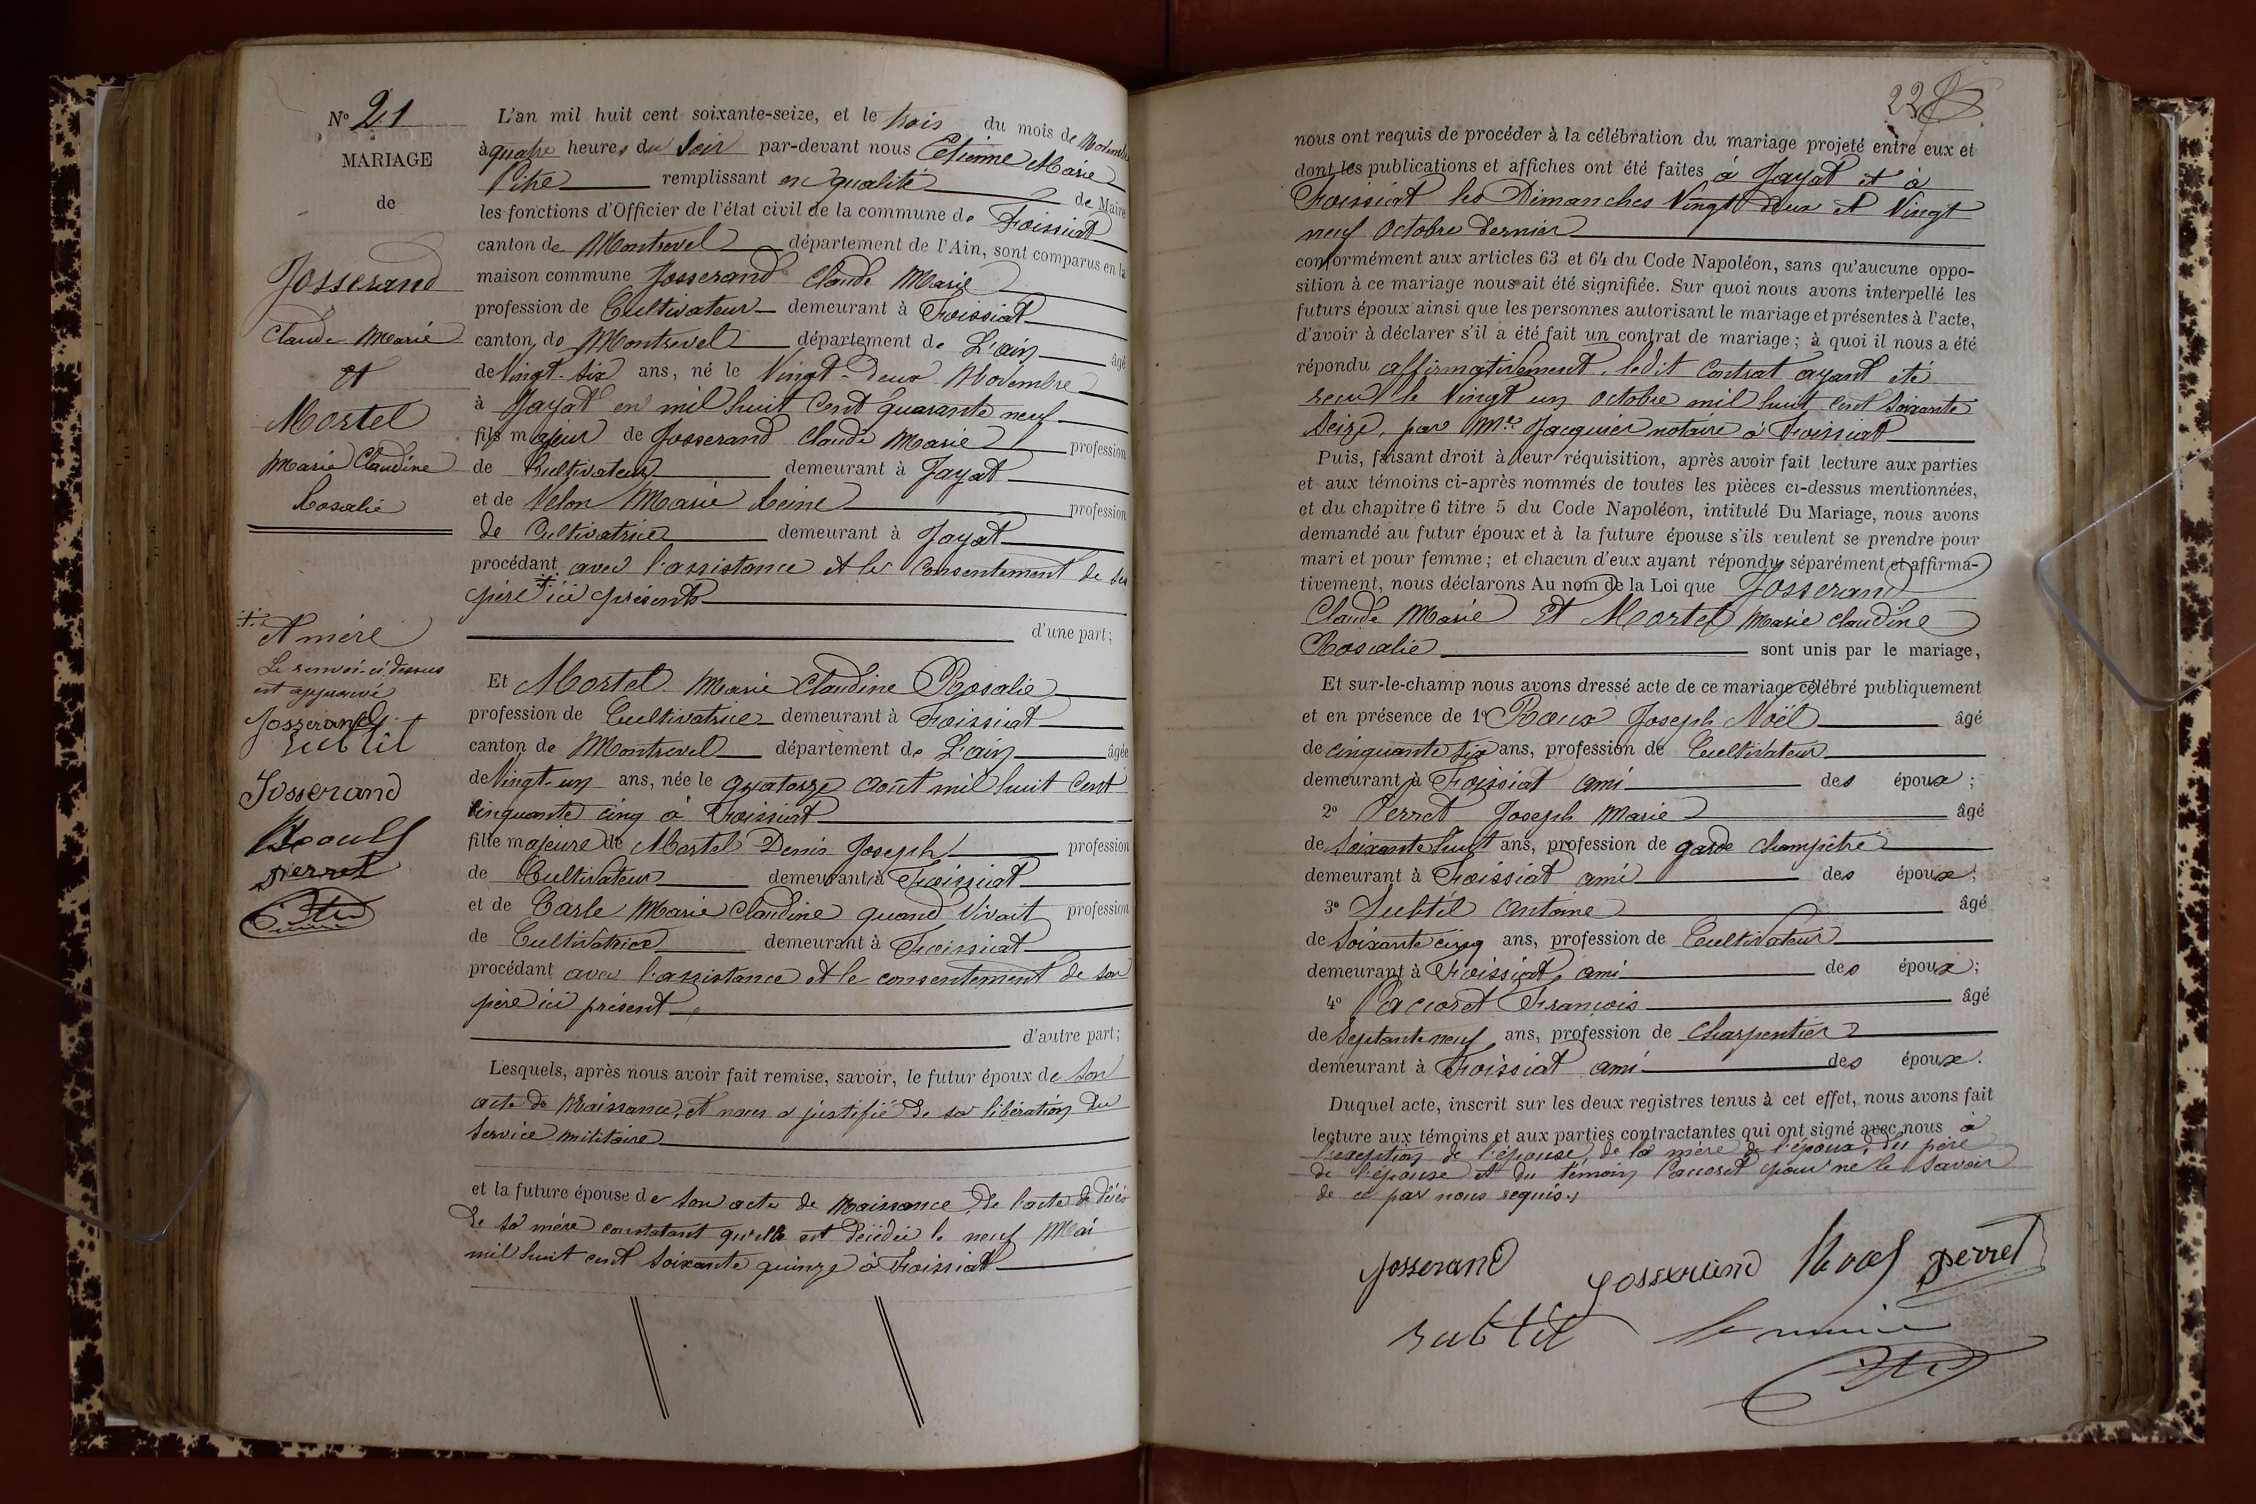 Nº 21
MARIAGE
de
Josserand
Claude Marie
et
Mortel
Marie Claudine
Rosalie
+ et mère
Le renvoi ci dessus
est approuvé
Josserand
subtil
Josserand
perret
L'an mil huit cent soixante-seize, et le trois du mois de Novembre
à quatre heures du soir par-devant nous Etienne Marie
Pitre remplissant en qualité de Maire
les fonctions d'Officier de l'état civil de la commune de Foissiat
canton de Montrevel département de l'Ain, sont comparus en la
maison commune Josserand Claude Marie
profession de Cultivateur demeurant à Foissiat
canton de Montrevel département de L'ain âgé
de Vingt-six ans, né le Vingt-deux Novembre
à Jayat en mil huit cent quarante neuf
fils majeur de Josserand Claude Marie profession
de Cultivateur demeurant à Jayat
et de Velon Marie Reine profession
de Cultivatrice demeurant à Jayat
procédant avec l'assistance et le consentement de ses
père + ici présents
d'une part;
Et Mortel Marie Claudine Rosalie
profession de Cultivatrice demeurant à Foissiat
canton de Montrevel département de L'ain âgée
de Vingt-un ans, née le quatorze août mil huit cent
cinquante cinq à Foissiat
fille majeure de Mortel Denis Joseph profession
de Cultivateur demeurant à Foissiat
et de Carle Marie Claudine quand vivait profession
de Cultivatrice demeurant à Foissiat
procédant avec l'assistance et le consentement de son
père ici présent
d'autre part;
Lesquels, après nous avoir fait remise, savoir, le futur époux de son
acte de Naissance, et nous a justifié de sa libération du
service militaire
et la future épouse de son acte de Naissance, de l'acte de décès
de sa mère constatant qu'elle est décédée le neuf Mai
mil huit cent soixante quinze à Foissiat
22
nous ont requis de procéder à la célébration du mariage projeté entre eux et
dont les publications et affiches ont été faites à Jayat et à
Foissiat les Dimanches Vingt deux et Vingt
neuf Octobre dernier
conformément aux articles 63 et 64 du Code Napoléon, sans qu'aucune oppo-
sition à ce mariage nous ait été signifiée. Sur quoi nous avons interpellé les
futurs époux ainsi que les personnes autorisant le mariage et présentes à l'acte,
d'avoir à déclarer s'il a été fait un contrat de mariage; à quoi il nous a été
répondu affirmativement, ledit contrat ayant été
reçu le Vingt un octobre mil huit cent soixante
seize, par Me Jacquier notaire à Foissiat
Puis, faisant droit à leur réquisition, après avoir fait lecture aux parties
et aux témoins ci-après nommés de toutes les pièces ci-dessus mentionnées,
et du chapitre 6 titre 5 du Code Napoléon, intitulé Du Mariage, nous avons
demandé au futur époux et à la future épouse s'ils veulent se prendre pour
mari et pour femme; et chacun d'eux ayant répondu séparément et affirma-
tivement, nous déclarons Au nom de la Loi que Josserand
Claude Marie et Mortel Marie Claudine
Rosalie sont unis par le mariage,
Et sur-le-champ nous avons dressé acte de ce mariage célébré publiquement
et en présence de 1º Roux Joseph Noël âgé
de cinquante six ans, profession de Cultivateur
demeurant à Foissiat ami des époux;
2º Perret Joseph Marie âgé
de soixante huit ans, profession de garde champêtre
demeurant à Foissiat ami des époux;
3º Subtil Antoine âgé
de soixante cinq ans, profession de Cultivateur
demeurant à Foissiat, ami des époux;
4º Paccoret François âgé
de septante neuf ans, profession de charpentier
demeurant à Foissiat ami des époux.
Duquel acte, inscrit sur les deux registres tenus à cet effet, nous avons fait
lecture aux témoins et aux parties contractantes qui ont signé avec nous à
l'exception de l'épouse, de la mère de l'époux, du père
de l'épouse et du témoin Paccoret pour ne le savoir
de ce par nous requis.
Josserand Josserand perret
subtil le maire